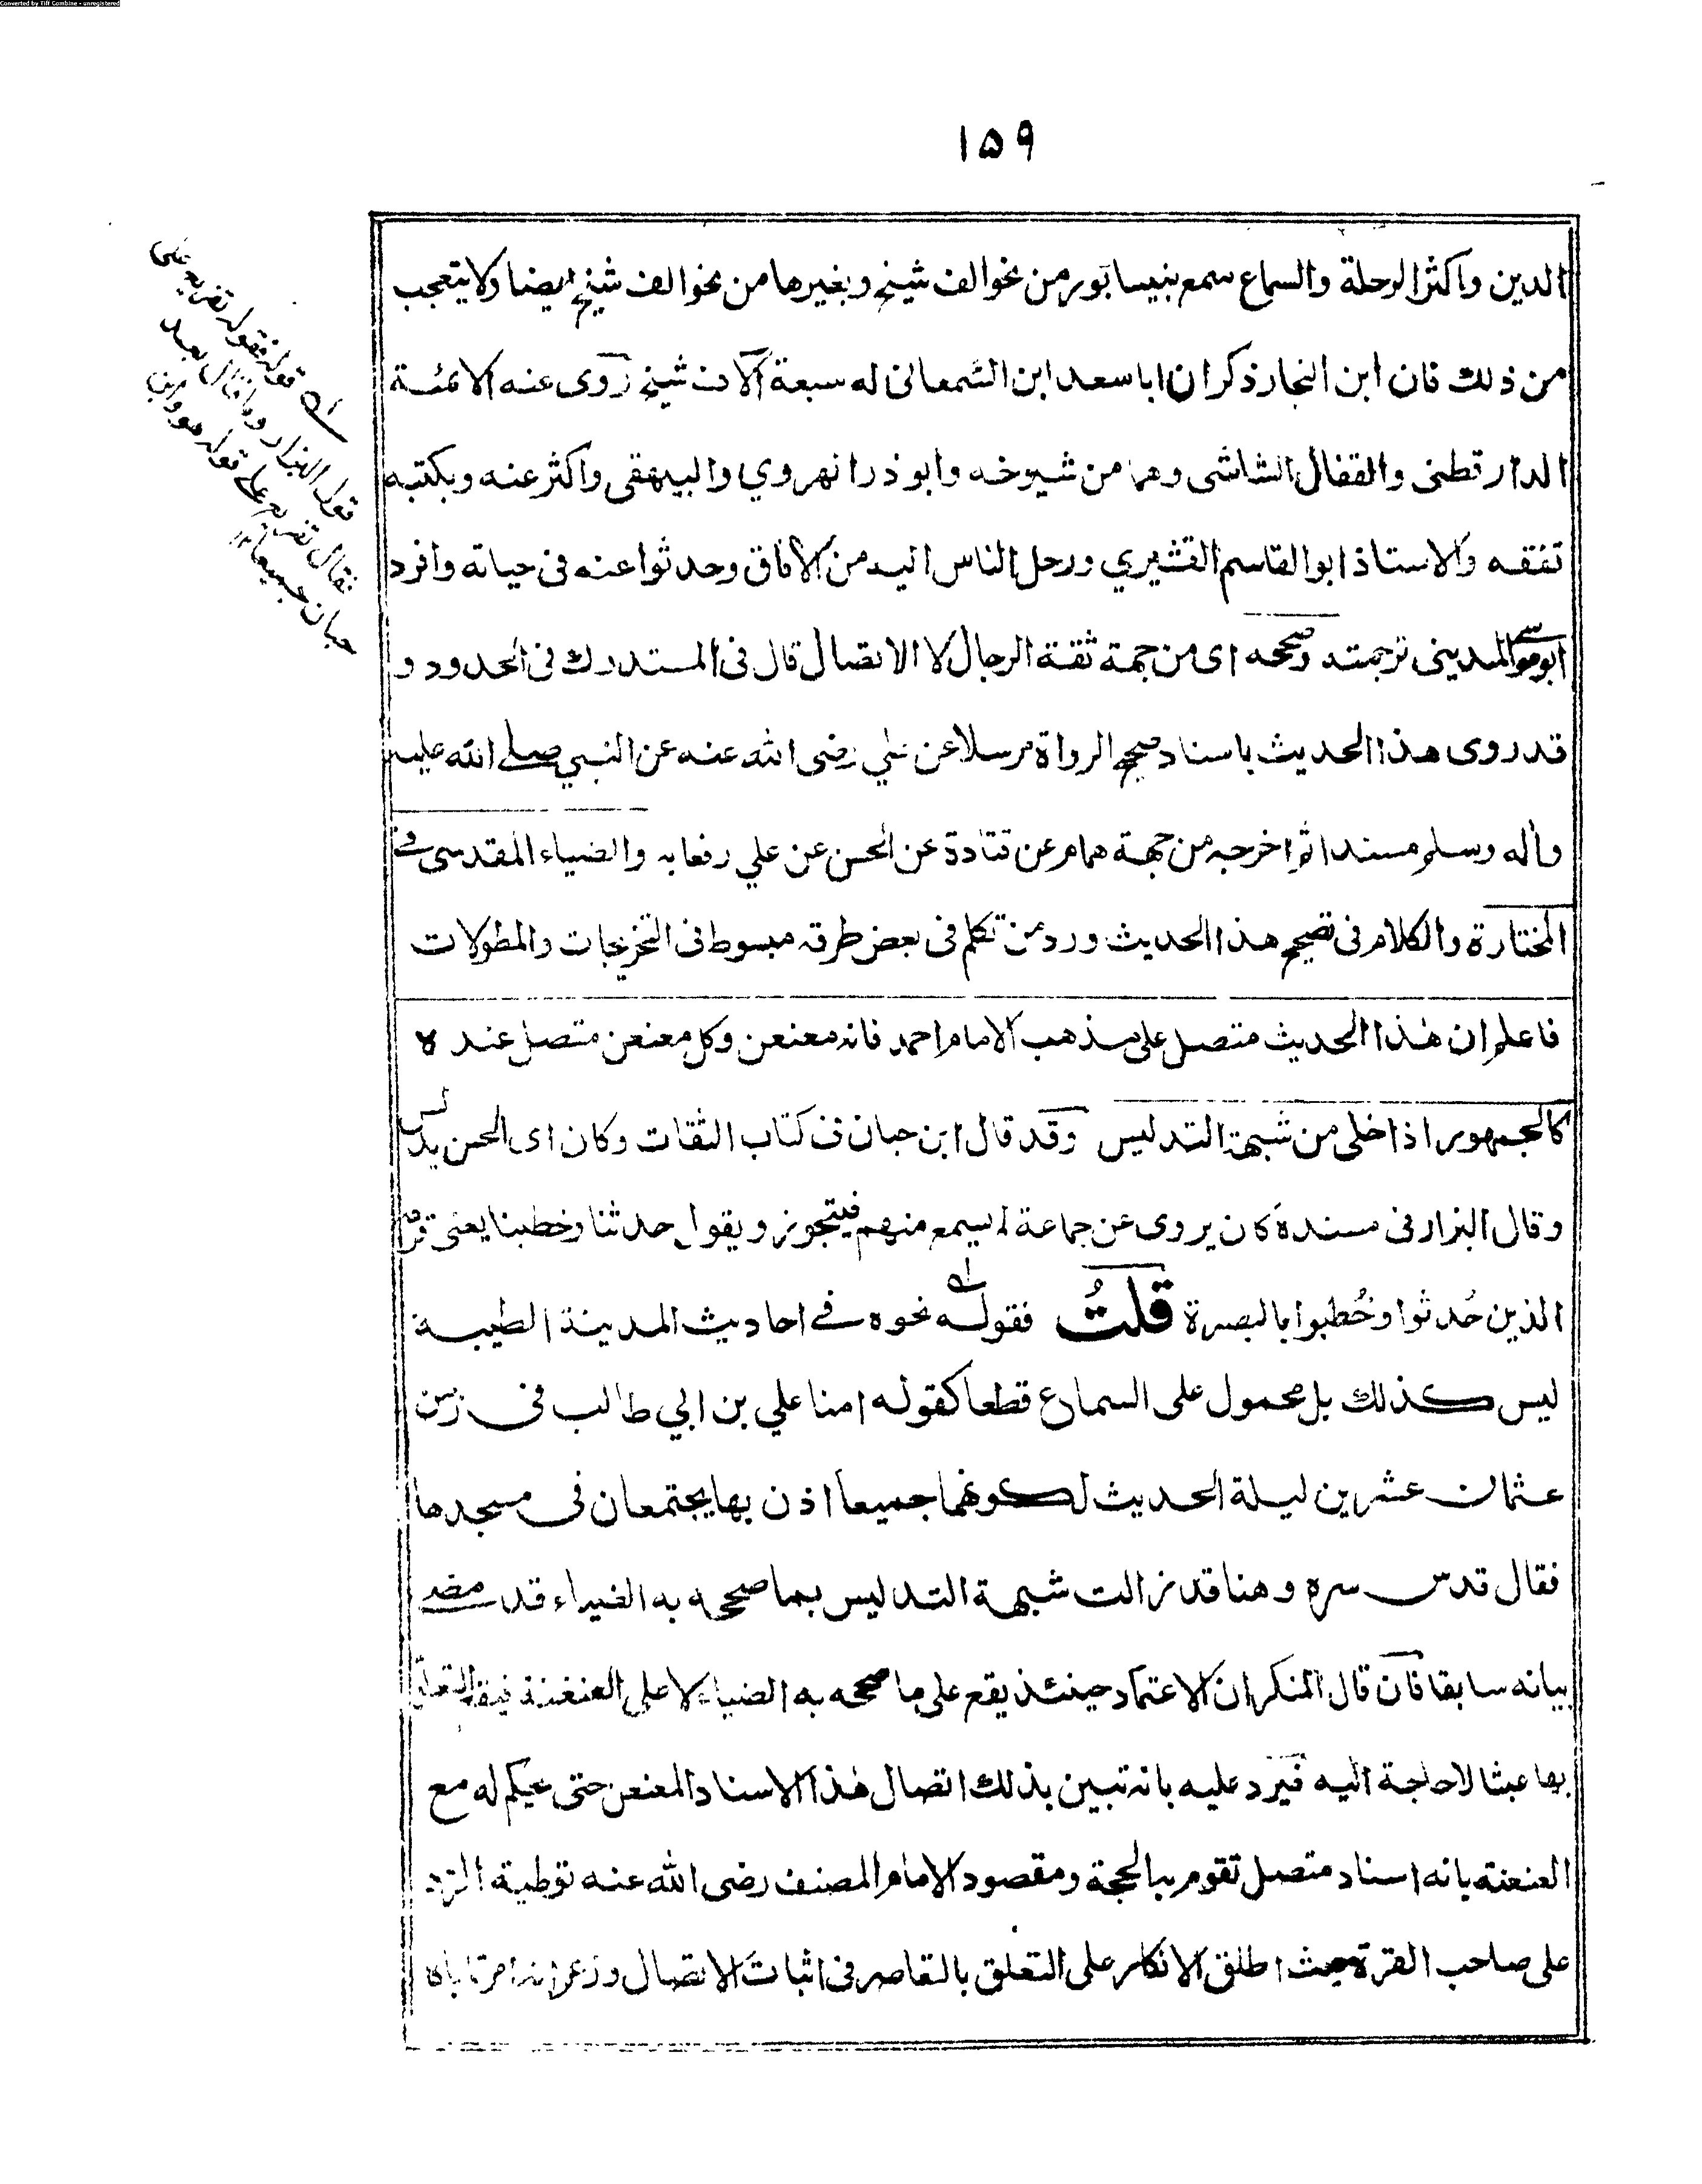 Converted by Tiff Combine - unregistered
١٥٩
الدين واكثر الرحلة والسماع سمع بنيسابور من نحو الف شيخ وبغيرها من نحو الف شيخ ايضا ولا يتعجب
من ذلك فان ابن النجار ذكر ان ابا سعد ابن السمعانى له سبعة آلاف شيخ روى عنه الائمة
الدارقطنى والقفال الشاشى وهما من شيوخه وابو ذر الهروي والبيهقى واكثر عنه وبكتبه
تفقه والاستاذ ابو القاسم القشيري ورحل الناس اليه من الآفاق وحدثوا عنه فى حياته وافرد
ابو موسى المدينى ترجمته وصححه اى من جهة ثقة الرجال لا الاتصال قال فى المستدرك فى الحدود و
قد روى هذا الحديث باسناد صحيح الرواة مرسلا عن علي رضى الله عنه عن النبي صلى الله عليه
وآله وسلم مسندا ثم اخرجه من جهة همام عن قتادة عن الحسن عن علي رفعا به والضياء المقدسى فى
المختارة والكلام فى تصحيح هذا الحديث ورد من تكلم فى بعض طرقه مبسوط فى التخريجات والمطولات
فاعلم ان هذا الحديث متصل على مذهب الامام احمد فانه معنعن وكل معنعن متصل عنده
كالجمهور اذا خلى من شبهة التدليس وقد قال ابن حبان فى كتاب الثقات وكان اى الحسن يدلس
وقال البزار فى مسنده كان يروى عن جماعة لم يسمع منهم فيتجوز ويقول حدثنا وخطبنا يعنى قومه
الذين حُدثوا وخُطبوا بالبصرة قلتُ فقوله نحوه فى احاديث المدينة الطيبة
ليس كذلك بل محمول على السماع قطعا كقوله امنا علي بن ابي طالب فى زمن
عثمان عشرين ليلة الحديث لكونهما جميعا اذن بها يجتمعان فى مسجدها
فقال قدس سره وهنا قد زالت شبهة التدليس بما صححه به الضياء قد مضى
بيانه سابقا فان قال المنكر ان الاعتماد حينئذ يقع على ما صححه به الضياء لا على العنعنة فيقع التعلق
بها عبثا لا حاجة اليه فيرد عليه بانه تبين بذلك اتصال هذا الاسناد المعنعن حتى يحكم له مع
العنعنة بانه اسناد متصل تقوم به الحجة ومقصود الامام المصنف رضى الله عنه توطية الرد
على صاحب القرة حيث اطلق الانكار على التعلق بالتعاصر فى اثبات الاتصال وزعم انه امر تاباه
له قوله فقوله تفريع على
قول البزار وما قال بعد
فقال تفريع على قوله هو وابن
حبان جميعا ١٢